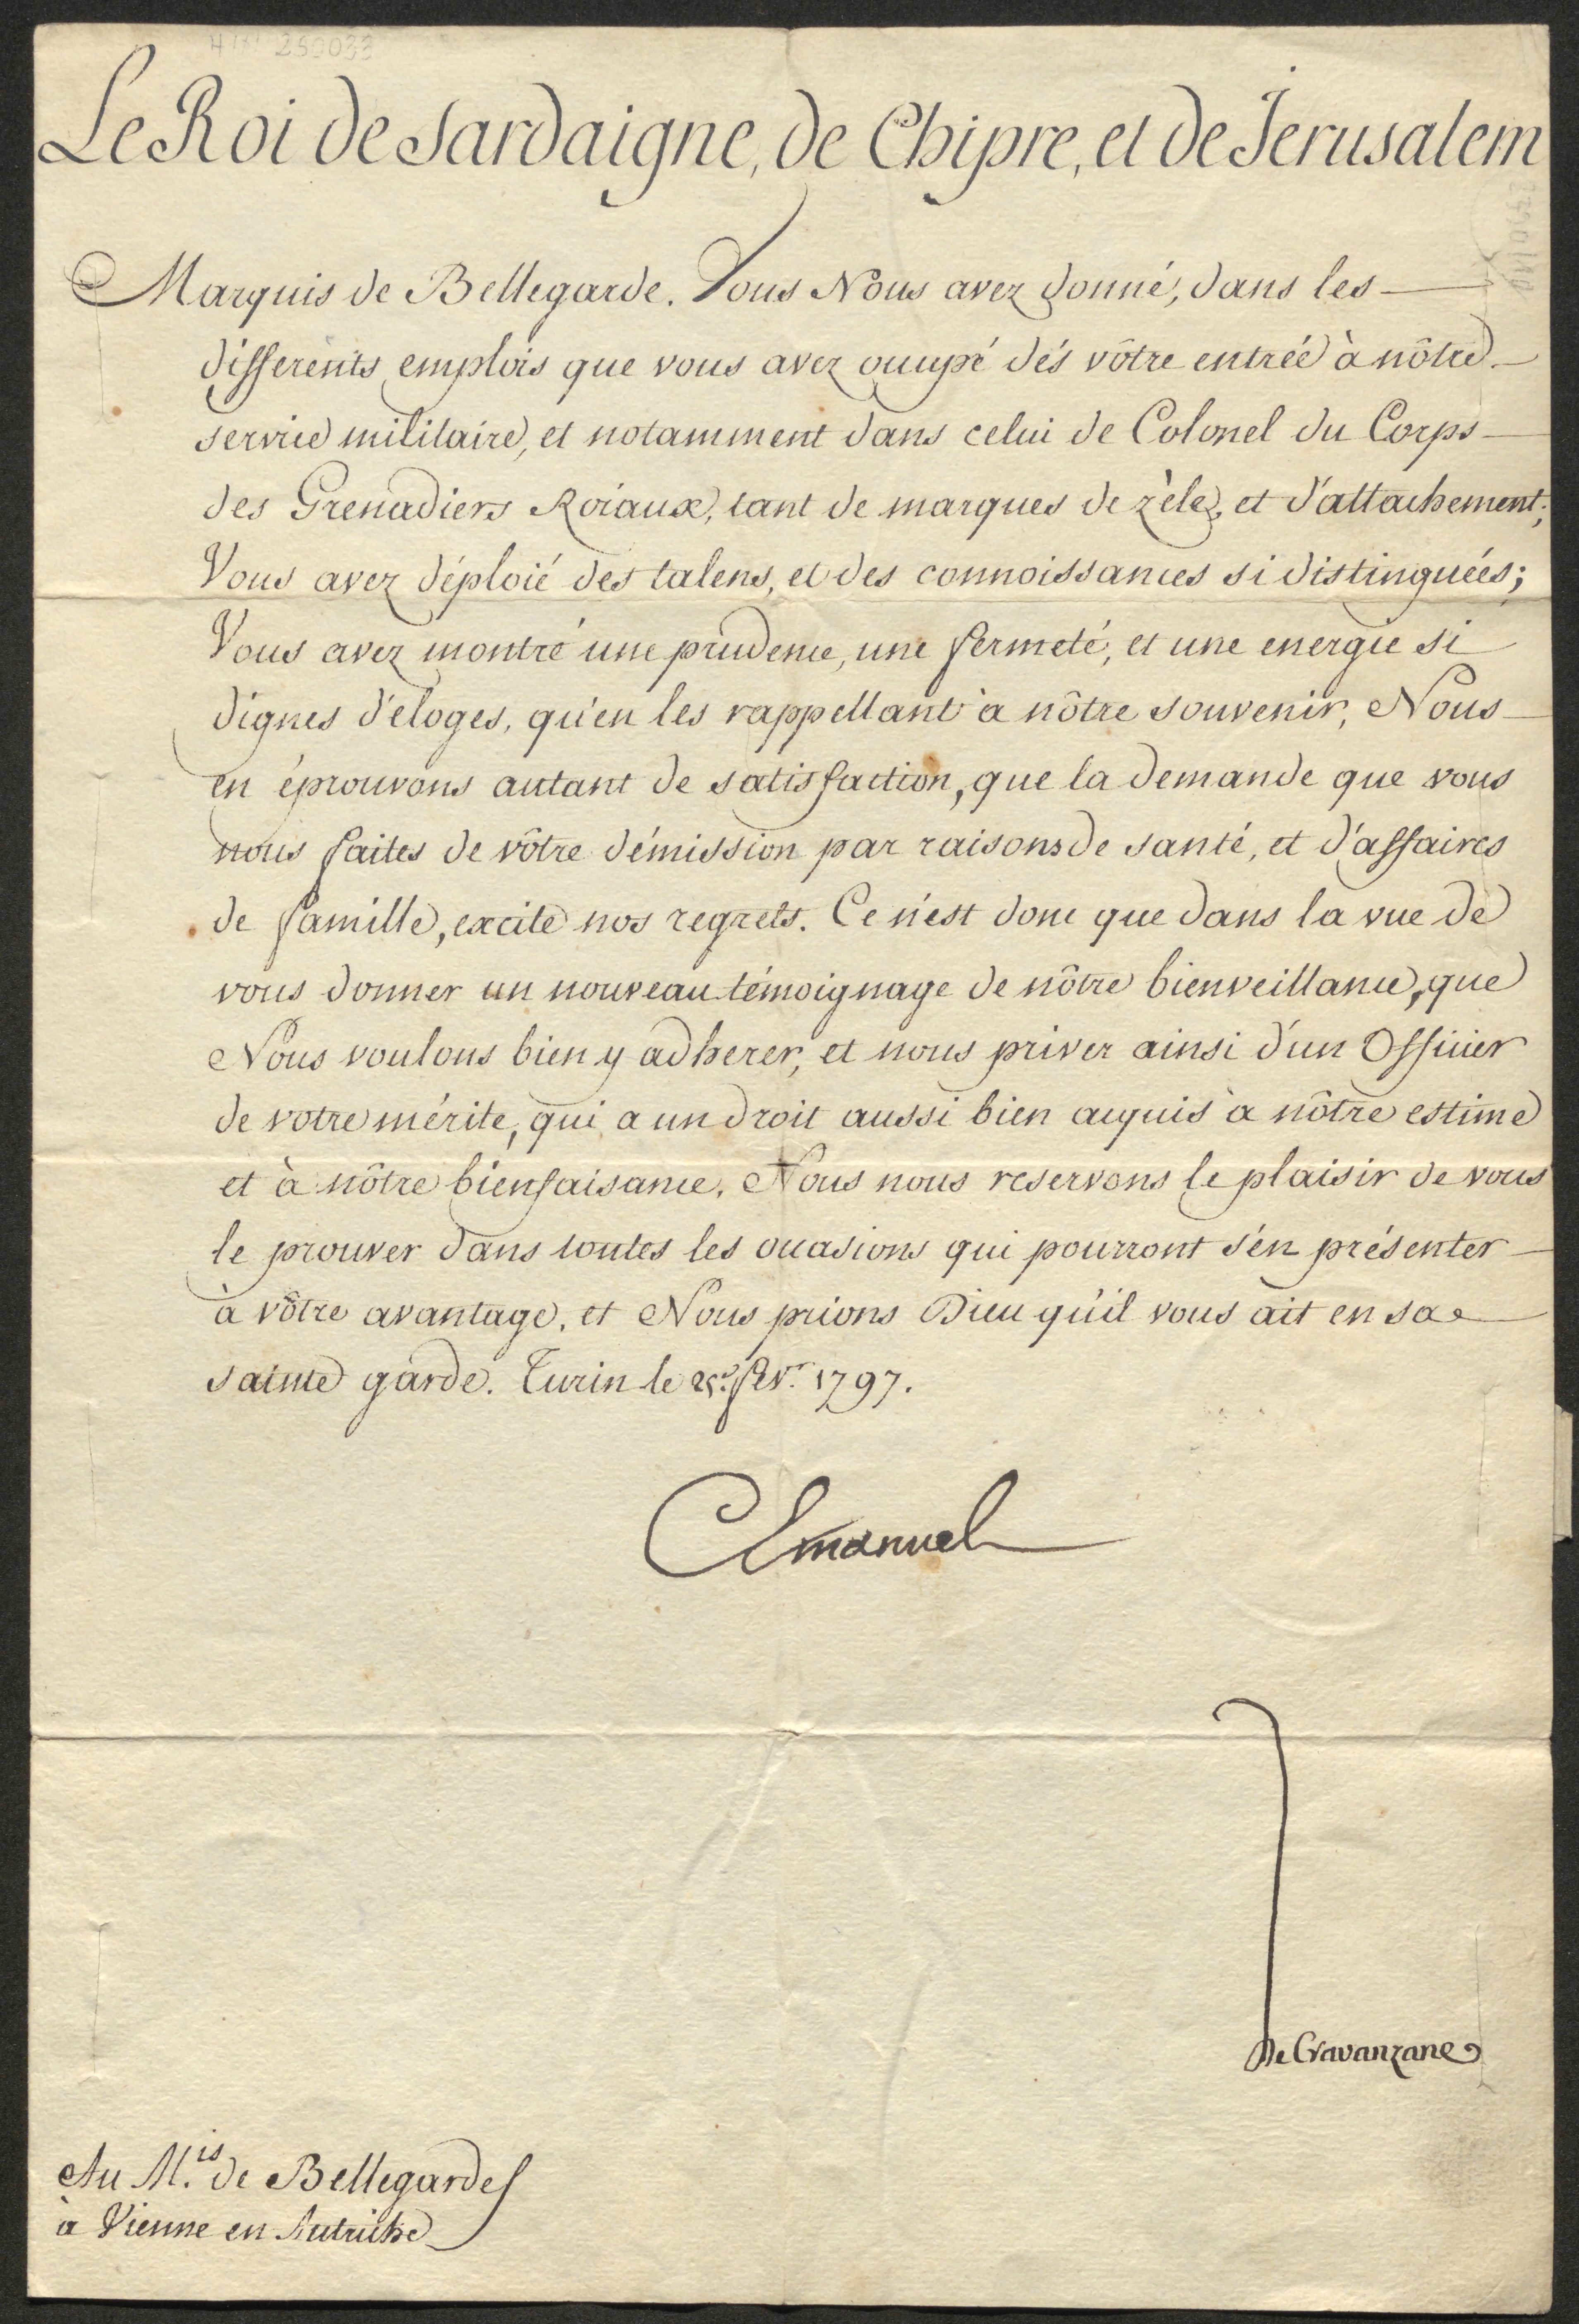 HIN 250033
Le Roi de Sardaigne, de Chipre, et de Jerusalem
Marquis de Bellegarde. Vous Nous avez donné, dans les
differents emplois que vous avez occupé dés vôtre entrée à nôtre
service militaire, et notamment dans celui de Colonel du Corps
des Grenadiers Roiaux, tant de marques de zèle, et d'attachement;
Vous avez déploié des talens, et des connoissances si distinguées;
Vous avez montré une prudence, une fermeté, et une energie si
dignes d'éloges, qu'en les rappellant à nôtre souvenir, Nous
en éprouvons autant de satisfaction, que la demande que vous
nous faites de vôtre démission par raisons de santé, et d'affaires
de famille, excite nos regrets. Ce n'est donc que dans la vue de
vous donner un nouveau témoignage de nôtre bienveillance, que
Nous voulons bien y adherer, et nous priver ainsi d'un Officier
de votre mérite, qui a un droit aussi bien acquis à nôtre estime
et à nôtre bienfaisance. Nous nous reservons le plaisir de vous
le prouver dans toutes les occasions qui pourront s'en présenter
à vôtre avantage, et Nous prions Dieu qu'il vous ait en sa
sainte garde. Turin le 25.e fev.r 1797.
C Emanuel
De Cravanzane
Au M.is de Bellegarde
à Vienne en Autriche